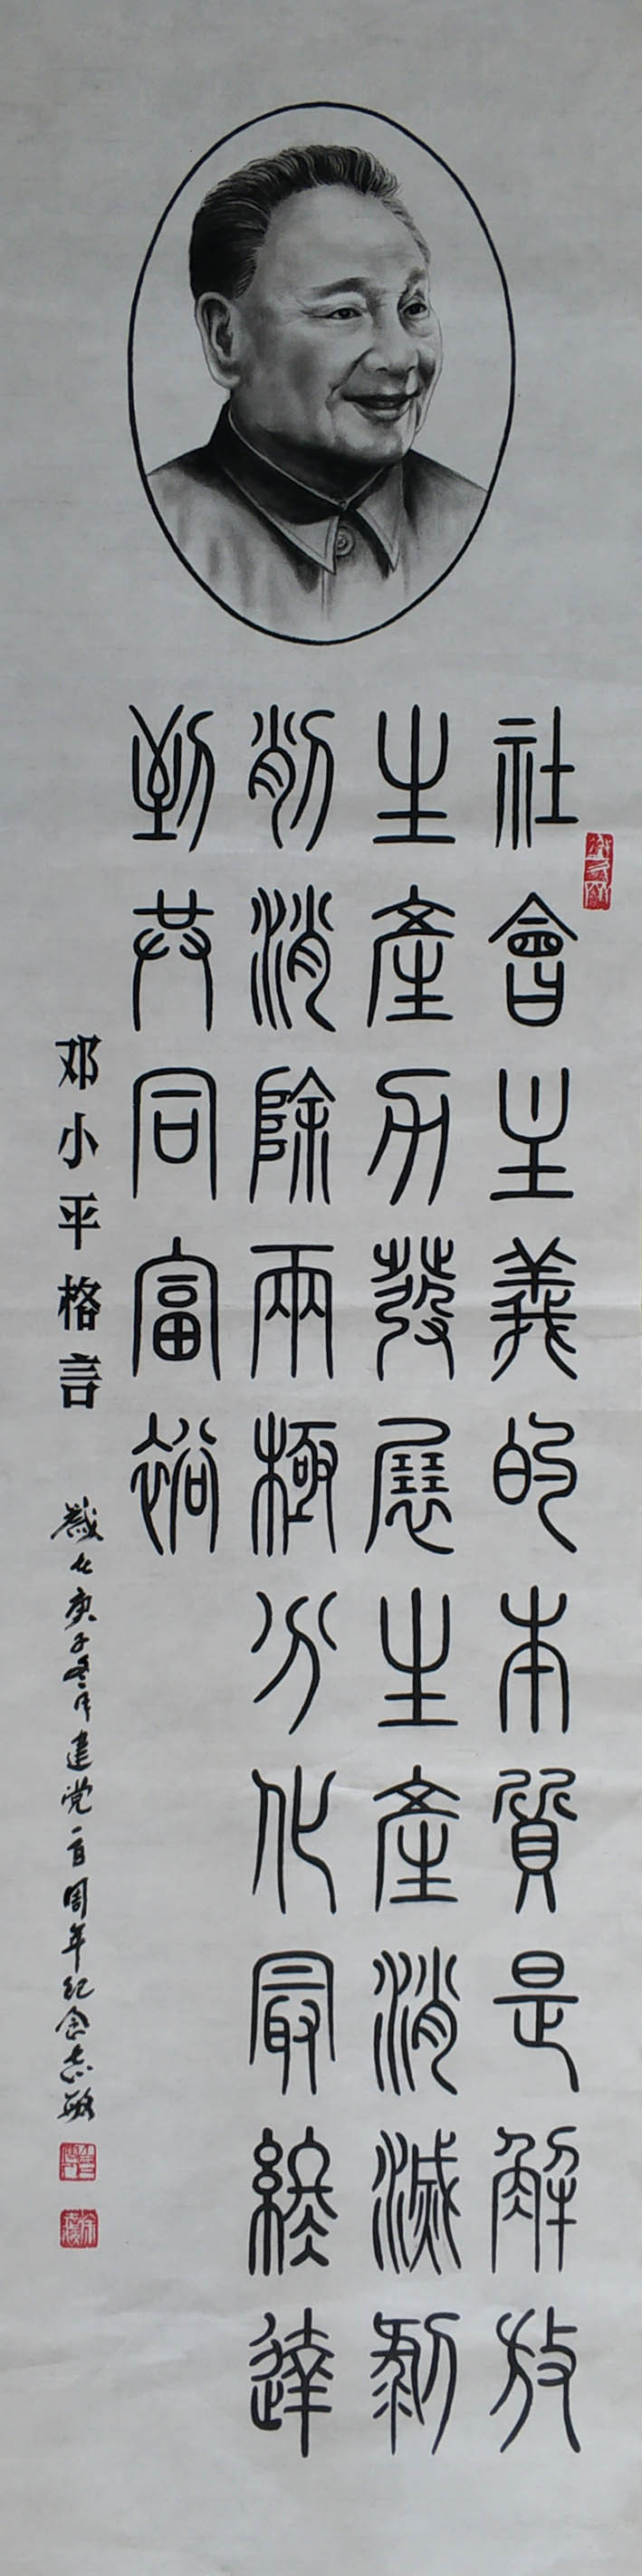 社會主義的本質是解放
生產力發展生產消滅剥
削消除兩極分化最終達
到共同富裕
邓小平格言
歲在庚子冬月建党一百周年纪念志敏